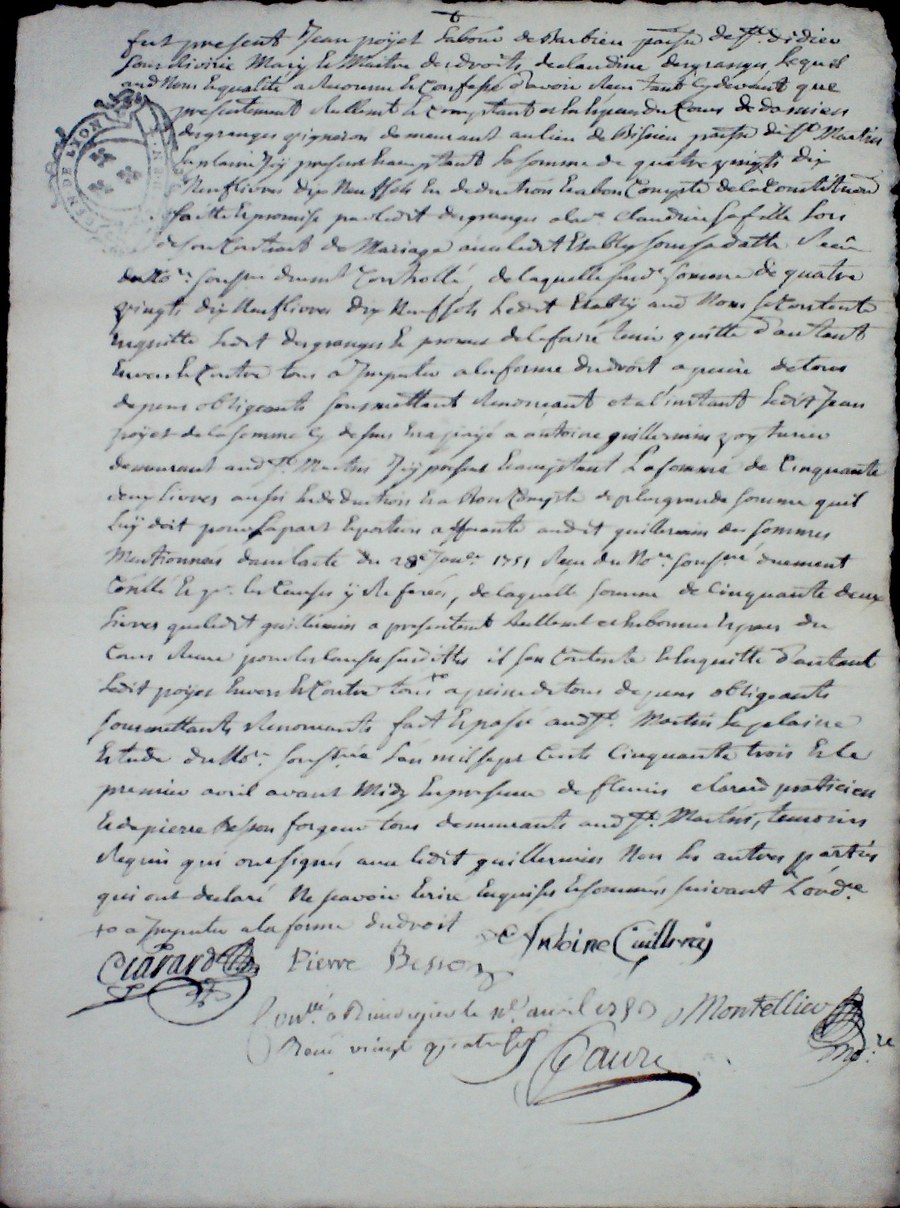 fut present Jean poyet labour de Barbieu parsse de St. didier
sous rivirie Mary et Maitre des droits de claudine desgranges Lequel
aud Nom Et qualité a Reconnu Et confessé d'avoir Reçu tant cy devant que
GEN DE LYON
presentement Reellemt. Et comptant en Especes du Cours de
desgranges vigneron demeurant au lieu de parsse de St. Martin
la plaine Jcy present Et acceptant la somme de quatre vingts dix
Neuf livres dix Neuf sols En deduction Et a bon Compte de la Constitution
faitte Et promise par ledit desgranges a lad. claudine sa fille Lors
de son Contract de Mariage avec ledit Etably sous sa datte Receu
du No.re sousse. duemt. Controllé, de laquelle susd. somme de quatre
vingts dix Neuf livres dix Neuf sols Ledit Etably aud Nom se Contente
Enquitte Ledit desgranges Et promet de le faire tenir quitte d'autant
Envers Et Contre tous a Jmputer a la forme du droit a peine de tous
depens obligeants soumettant Renonçant et a l'instant Ledit Jean
poyet de la somme cy dessus En a payé a antoine guillermin voyturier
demeurant aud St. Martin Jcy present Et acceptant La somme de Cinquante
deux livres aussi En deduction Et a Bon Compte de plus grande somme qu'il
Luy doit pour sa part Et portion afferante audit guillermin des sommes
Mentionnées dans lacte du 28e Janer. 1751 Reçu du No.re sousné. duement
Conllé Et pr. les Causes y Referées, de laquelle somme de cinquante deux
Livres que ledit guillermin a presentemt Reellemt. et En bonnes Especes du
Cours Reçue pour les causes susdittes il s'en Contente Et En quitte d'autant
Ledit poyet Envers Et Contre tous to a peine de tous depens obligeants
soumettants Renonceants fait Et passé aud St. Martin La plaine
Etude du No.re sousné. L'an mil sept Cents Cinquante trois Et le
premier avril avant Midy En presence de fleuris clarard praticien
Et de pierre Besson forgeur tous demeurants aud St. Martin, temoins
Requis qui ont signés avec ledit guillermin Non les autres parties
qui ont declaré Ne savoir Ecrire Enquises Et sommées suivant L'ordce.
to a Jmputer a la forme du droit
Antoine Guillermin
Clarard Pierre Besson
Conllé a Rivedegier le avril 1753 Montellier
Receu vingt quatre sols no.re
Faure